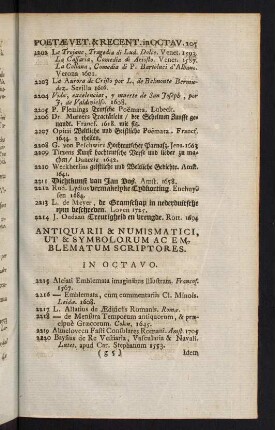 POETÆ VET. & RECENT. in OCTAV. 205
2202 Le Trojane, Tragedia di Lud. Dolce. Venet. 1593
La Cassaria, Comedia di Ariosto. Venet. 1587.
La Comedia di P. Bartolucci d'Albani.
Verona 1602.
2203 La Aurora de Cristo por L. de Belmonte Bermu-
dez. Sevilla 1616.
2204 Vida, excelencias, y muerte de San Joseph, por
J. de Valdivielso. 1608.
2205 P. Flemings Teutsche Poëmata. Lubeck.
2206 Dr. Mureers Tractätlein / der Geheimen Zunfft ge-
nandt. Francf. 1618. mit fig.
2207 Opitii Weltliche und Geistliche Poëmata. Francf.
1644. 2 theilen.
2208 G. von Peschwitz Hochteutscher Parnass. Jena 1663
2209 Titzens Kunst hochteutsche Verse und lieder zu ma-
chen / Dantzic 1642.
2210 Weckherlins geistliche und Weltliche Gedichte. Amst.
1641.
2211 Dichtkunst van Jan Vos. Amst. 1658.
2212 Rud. Lydius vermakelyke Tydkorting. Enchuy-
sen 1684.
2213 L. de Meyer, de Gramschap in nederduitsche
rym beschreven. Loven 1725.
2214 J. Oudaan Treurigheid en vreugde. Rott. 1674
ANTIQUARII & NUMISMATICI,
UT & SYMBOLORUM AC EM-
BLEMATUM SCRIPTORES.
IN OCTAVO.
2215 Alciati Emblemata imaginibus illustrata. Francof.
1567.
2216 — Emblemata, cum commentariis Cl. Minois.
Leidæ. 1608.
2217 L. Allatius de Ædificiis Romanis. Romæ.
2218 — de Mensura Temporum antiquorum, & præ-
cipuè Græcorum. Colon. 1645.
2219 Almeloveen Fasti Consulares Romani. Amst. 1705
2220 Baysius de Re Vestiaria, Vascularia & Navali.
Lutet. apud Car. Stephanum 1553.
Idem